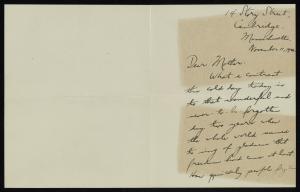 14 Story Street,
Cambridge,
Massachusetts
November 11, 19
Dear Mother,
What a contrast
this cold day today is
to that wonderful and
never to be forgotten
day two years when
the whole world seemed
to ring of gladness that
freedom had won at last.
How quickly people